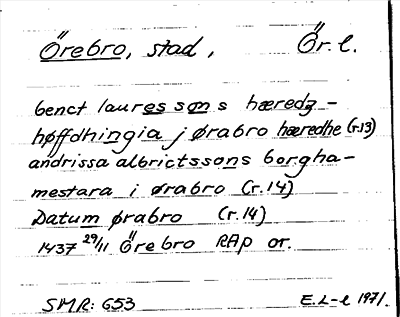 Örebro, stad, Ör. l.
benct lauresson s hæredz-
høffdhingia j ørabro hæredhe (r.13)
andrissa albrictssons borgha-
mestara i ørabro (r.14)
Datum ørabro (r.14)
1437 29/11 Örebro RAp or.
SMR: 653 E.L-l 1971.